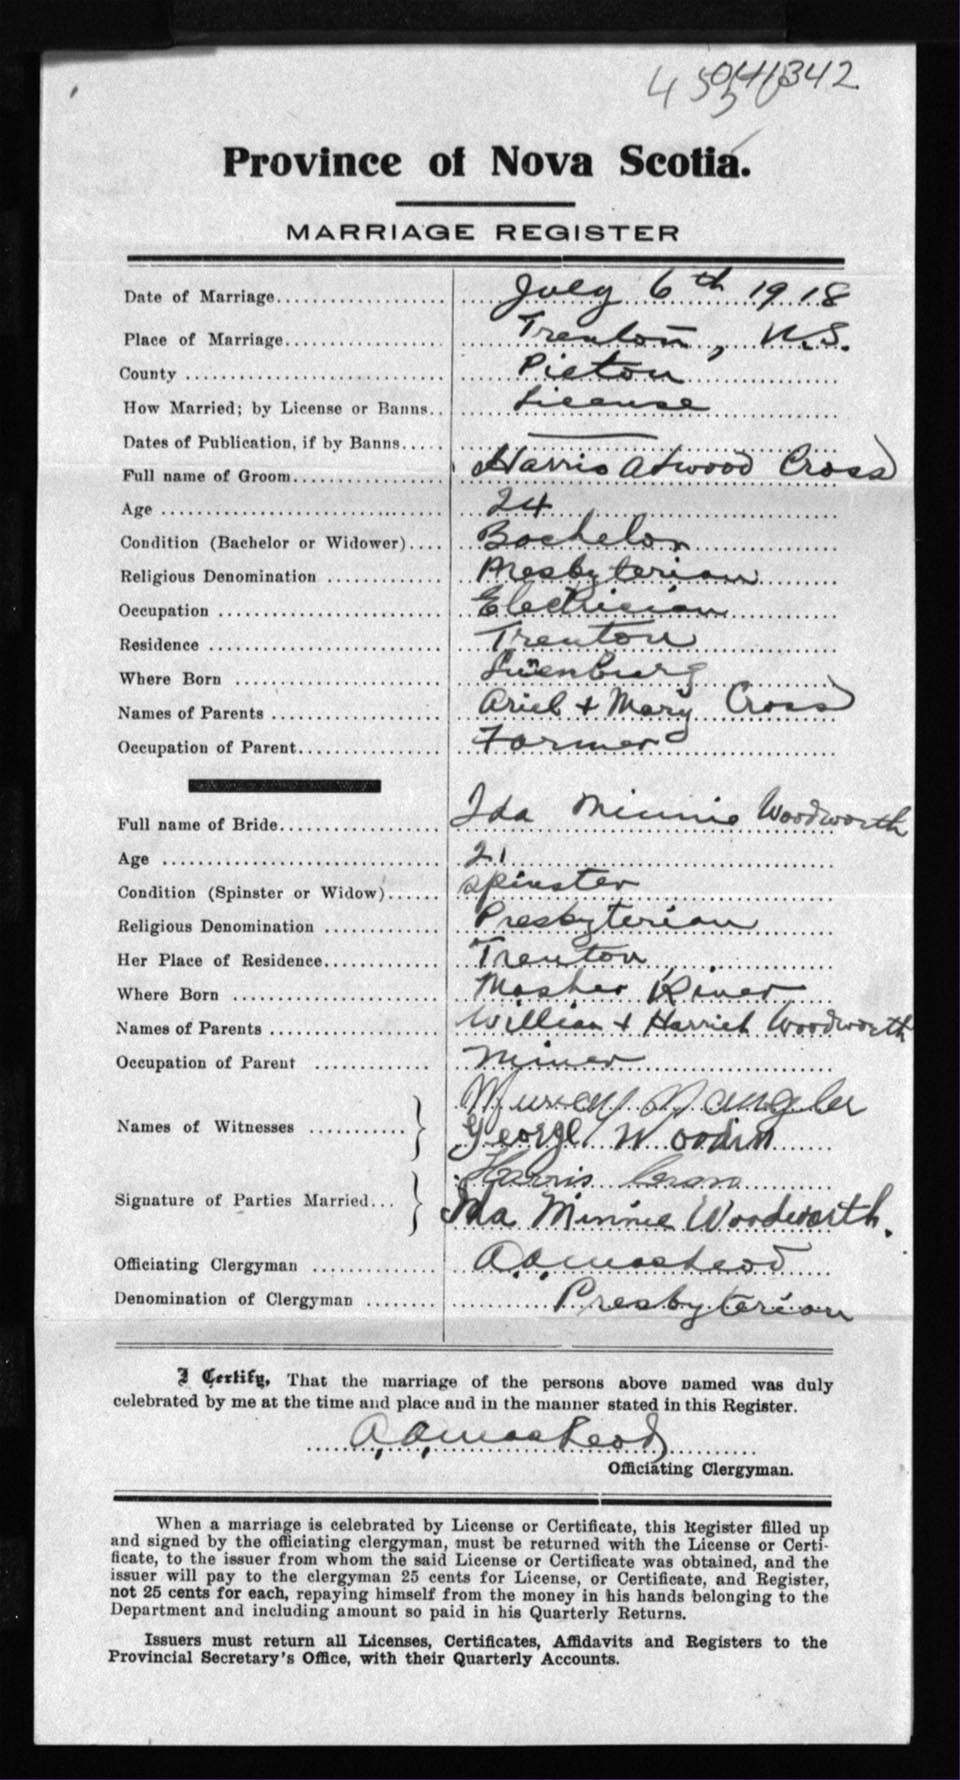 342
Province of Nova Scotia.
MARRIAGE REGISTER
Date of Marriage.................... July 6th 1918
Place of Marriage................... Trenton, N.S.
County .............................. Pictou
How Married; by License or Banns.. License
Dates of Publication, if by Banns..... ——
Full name of Groom.................. Harris Atwood Cross
Age ................................. 24
Condition (Bachelor or Widower).... Bachelor
Religious Denomination .............. Presbyterian
Occupation .......................... Electrician
Residence ........................... Trenton
Where Born ........................ Luenburg
Names of Parents .................... Ariel & Mary Cross
Occupation of Parent................. Farmer
Full name of Bride.................... Ida Minnie Woodworth
Age .................................. 21
Condition (Spinster or Widow)...... Spinster
Religious Denomination .............. Presbyterian
Her Place of Residence.............. Trenton
Where Born ......................... Mosher River
Names of Parents .................... William & Harriet Woodworth
Occupation of Parent .............. Miner
Names of Witnesses ........... } Murray
George Woodin
Signature of Parties Married... } Harris Cross
Ida Minnie Woodworth.
Officiating Clergyman .............. A.A. MacLeod
Denomination of Clergyman ........ Presbyterian
I Certify, That the marriage of the persons above named was duly
celebrated by me at the time and place and in the manner stated in this Register.
A.A. MacLeod
Officiating Clergyman.
When a marriage is celebrated by License or Certificate, this Register filled up
and signed by the officiating clergyman, must be returned with the License or Certi-
ficate, to the issuer from whom the said License or Certificate was obtained, and the
issuer will pay to the clergyman 25 cents for License, or Certificate, and Register,
not 25 cents for each, repaying himself from the money in his hands belonging to the
Department and including amount so paid in his Quarterly Returns.
Issuers must return all Licenses, Certificates, Affidavits and Registers to the
Provincial Secretary's Office, with their Quarterly Accounts.